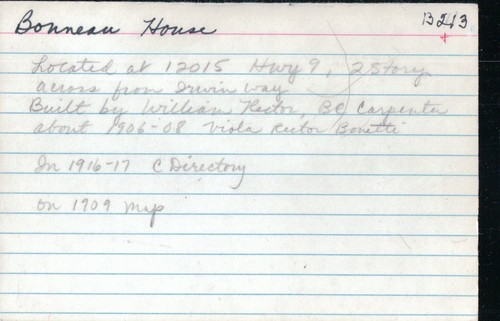 Bonneau House
B213
Located at 12015 Hwy 9, 2 Story
across from Irwin way
Built by William Rector, BC Carpenter
about 1906-08 Viola Rector Bonetti
In 1916-17 C Directory
on 1909 map